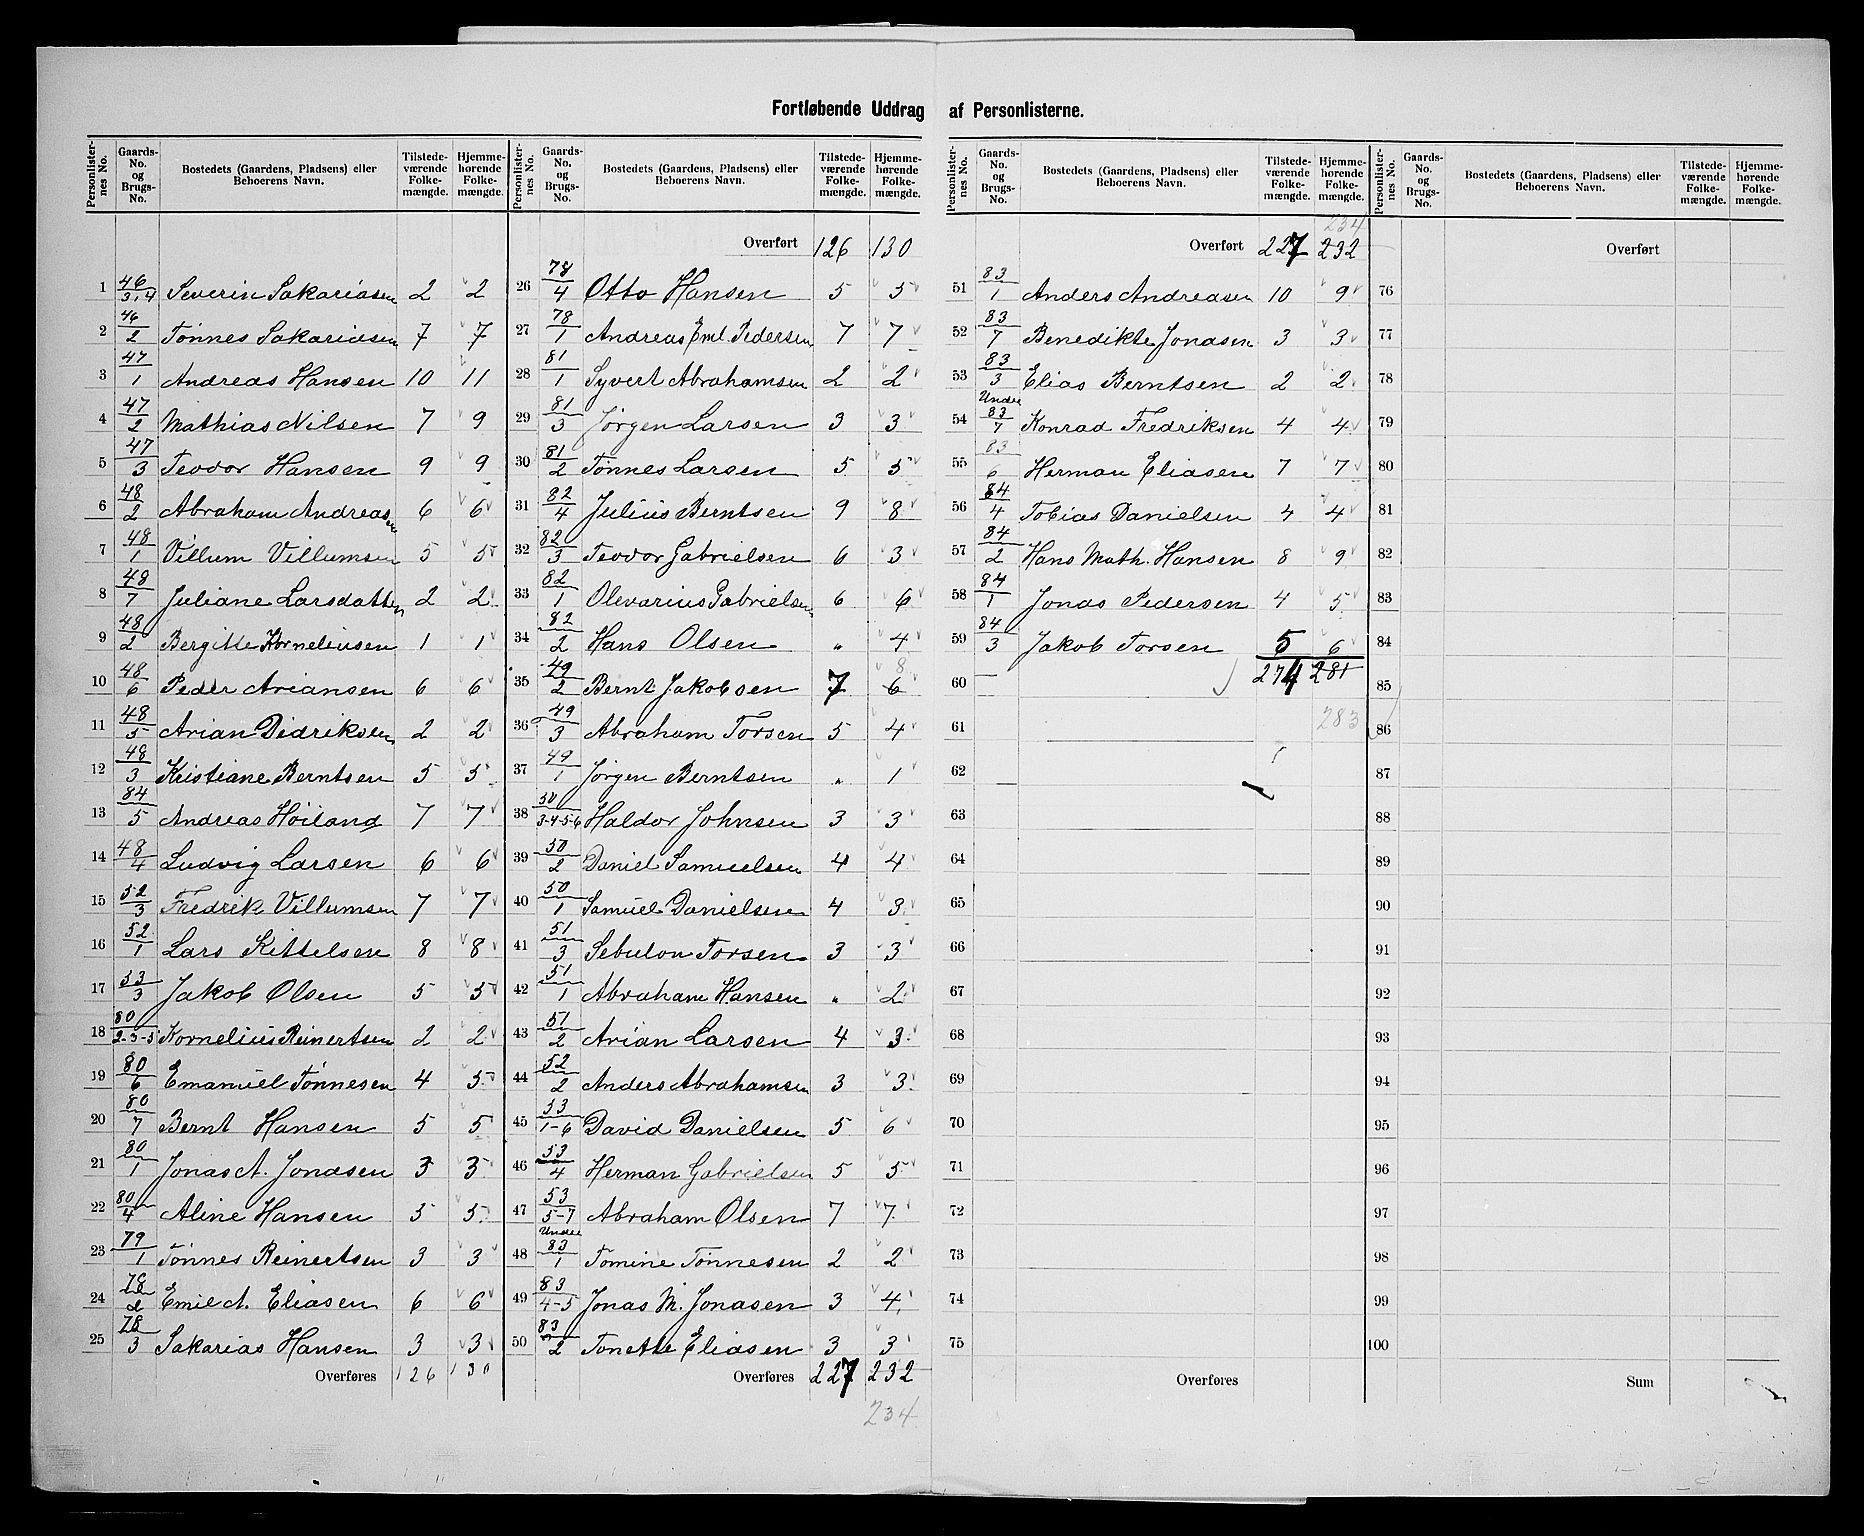 Fortløbende Uddrag af Personlisterne.
Personlister- nes No. | Gaards- No. og Brugs- No. | Bostedets (Gaardens, Pladsens) eller Beboerens Navn. | Tilstede- værende Folke- mængde. | Hjemme- hørende Folke- mængde.
1 46/3,4 Severin Sakariasen 2 2
2 46/2 Tønnes Sakariasen 7 7
3 47/1 Andreas Hansen 10 11
4 47/2 Mathias Nilsen 7 9
5 47/3 Teodor Hansen 9 9
6 48/2 Abraham Andreasen 6 6
7 48/1 Villum Villumsen 5 5
8 48/7 Juliane Larsdatter 2 2
9 48/2 Bergitte Korneliusen 1 1
10 48/6 Peder Ariansen 6 6
11 48/5 Arian Didriksen 2 2
12 48/3 Kristiane Berntsen 5 5
13 84/5 Andreas Høiland 7 7
14 48/4 Ludvig Larsen 6 6
15 52/3 Fredrik Villumsen 7 7
16 52/1 Lars Kittelsen 8 8
17 53/3 Jakob Olsen 5 5
18 80/2-3-5 Kornelius Reinertsen 2 2
19 80/6 Emanuel Tønnesen 4 5
20 80/7 Bernt Hansen 5 5
21 80/1 Jonas A. Jonasen 3 3
22 80/4 Aline Hansen 5 5
23 79/1 Tønnes Reinertsen 3 3
24 78/2 Emil A. Eliasen 6 6
25 78/3 Sakarias Hansen 3 3
Overføres 126 130
Personlister- nes No. | Gaards- No. og Brugs- No. | Bostedets (Gaardens, Pladsens) eller Beboerens Navn. | Tilstede- værende Folke- mængde. | Hjemme- hørende Folke- mængde.
Overført 126 130
26 78/4 Otto Hansen 5 5
27 78/1 Andreas Eml. Pedersen 7 7
28 81/1 Syvert Abrahamsen 2 2
29 81/3 Jørgen Larsen 3 3
30 81/2 Tønnes Larsen 5 5
31 82/4 Julius Berntsen 9 8
32 82/3 Teodor Gabrielsen 6 3
33 82/1 Olevarius Gabrielsen 6 6
34 82/2 Hans Olsen " 4
35 49/2 Bernt Jakobsen 7 6 8
36 49/3 Abraham Torsen 5 4
37 49/1 Jørgen Berntsen " 1
38 50/3-4-5-6 Haldor Johnsen 3 3
39 50/2 Daniel Samuelsen 4 4
40 50/1 Samuel Danielsen 4 3
41 51/3 Sebulon Torsen 3 3
42 51/1 Abraham Hansen " 2
43 51/2 Arian Larsen 4 3
44 52/2 Anders Abrahamsen 3 3
45 53/1-6 David Danielsen 5 6
46 53/4 Herman Gabrielsen 5 5
47 53/5-7 Abraham Olsen 7 7
48 Under 83/1 Tomine Tønnesen 2 2
49 83/4-5 Jonas M. Jonasen 3 4
50 83/2 Tonette Eliasen 3 3
Overføres 227 232
234
Personlister- nes No. | Gaards- No. og Brugs- No. | Bostedets (Gaardens, Pladsens) eller Beboerens Navn. | Tilstede- værende Folke- mængde. | Hjemme- hørende Folke- mængde.
234
Overført 227 232
51 83/1 Anders Andreasen 10 9
52 83/7 Benedikte Jonasen 3 3
53 83/3 Elias Berntsen 2 2
54 Under 83/7 Konrad Fredriksen 4 4
55 83/6 Herman Eliasen 7 7
56 84/4 Tobias Danielsen 4 4
57 84/2 Hans Math. Hansen 8 9
58 84/1 Jonas Pedersen 4 5
59 84/3 Jakob Torsen 5 6
60 274 281
61 283
62
63
64
65
66
67
68
69
70
71
72
73
74
75
Overføres
Personlister- nes No. | Gaards- No. og Brugs- No. | Bostedets (Gaardens, Pladsens) eller Beboerens Navn. | Tilstede- værende Folke- mængde. | Hjemme- hørende Folke- mængde.
Overført
76
77
78
79
80
81
82
83
84
85
86
87
88
89
90
91
92
93
94
95
96
97
98
99
100
Sum